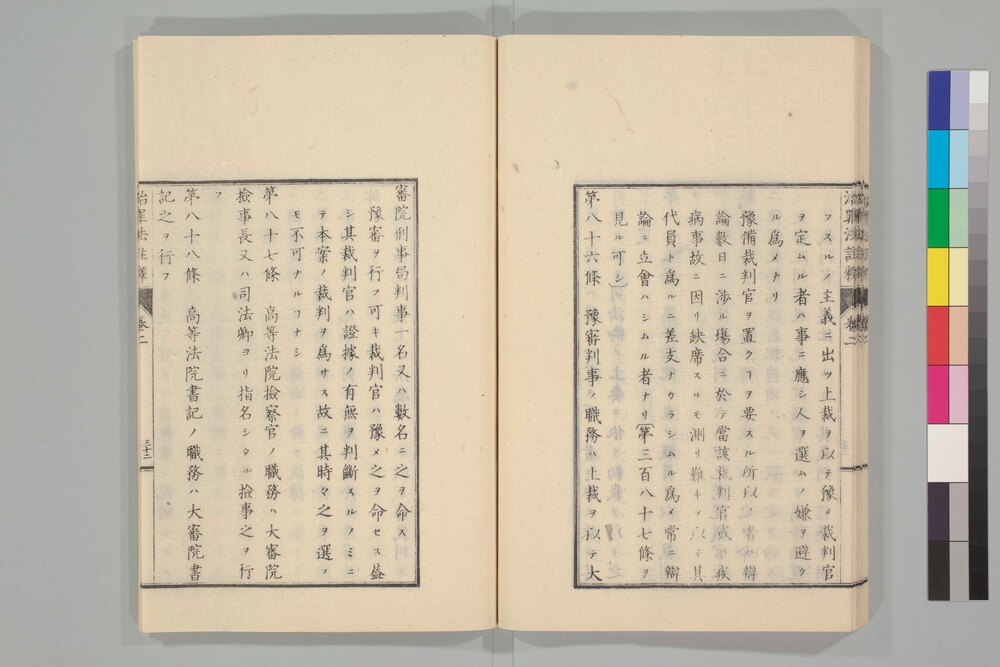 フスルノ主義ニ出ツ上裁ヲ以テ豫メ裁判官
ヲ定ムル者ハ事ニ應シ人ヲ選ムノ嫌ヲ避ク
ル爲メナリ
豫備裁判官ヲ置クヿヲ要スル所以ノ者ハ辯
論數日ニ渉ル塲合ニ於テ當該裁判官或ハ疾
病事故ニ因リ缺席スルモ測リ難キヲ以テ其
代員ト爲ルニ差支ナカラシムル爲メ常ニ辯
論ニ立會ハシムル者ナリ(第三百八十七條ヲ
見ル可シ)
第八十六條 豫審判事ノ職務ハ上裁ヲ以テ大
審院刑事局判事一名又ハ數名ニ之ヲ命ス
豫審ヲ行フ可キ裁判官ハ豫メ之ヲ命セス蓋
シ其裁判官ハ證據ノ有無ヲ判斷スルノミニ
テ本案ノ裁判ヲ爲サス故ニ其時々之ヲ選フ
モ不可ナルヿナシ
第八十七條 高等法院撿察官ノ職務ハ大審院
撿事長又ハ司法卿ヨリ指名シタル撿事之ヲ行
フ
第八十八條 高等法院書記ノ職務ハ大審院書
記之ヲ行フ
治罪法註釋 卷二 三十二